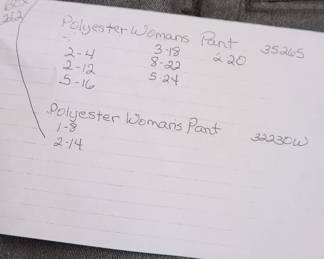 Box
262
Polyester Womans Pant 35265
2-4 3-18 2-20
2-12 8-22
5-16 5-24
Polyester Womans Pant 32230W
1-8
2-14